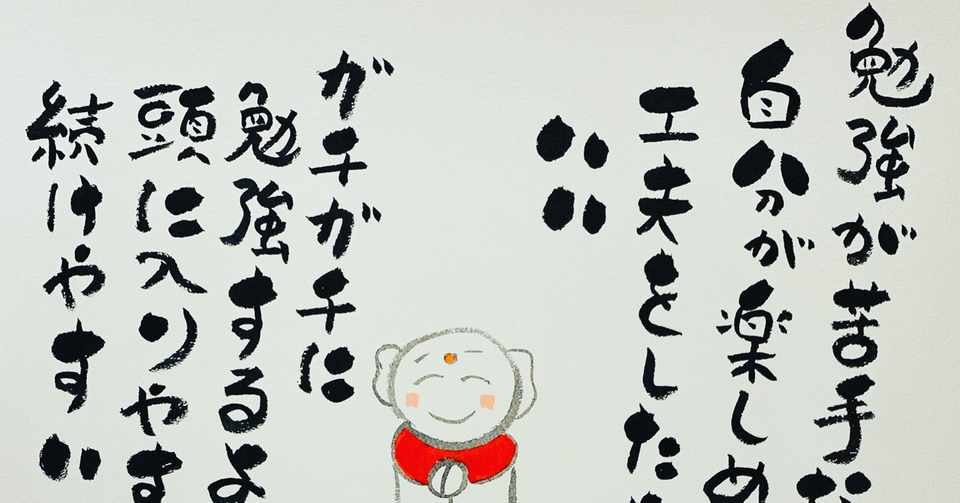 勉強が苦手な
自分が楽しめ
工夫をした
いい
ガチガチに
勉強するよ
頭に入りやす
続けやすい